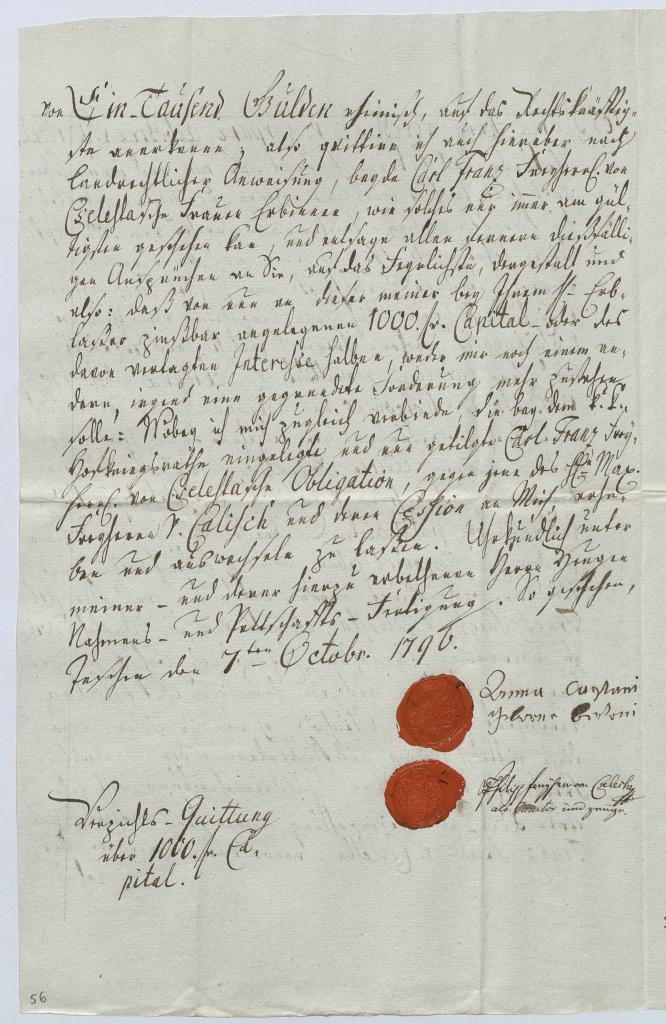 von Ein-Tausend Gulden rheinisch, auf das Rechtskräfftig-
ste anerkenne; also quittire ich auch hierüber nach
Landrechtlicher Anweisung, beyde Carl Franz Freyherrl. von
Celestasche Frauen Erbinnen, wie solches nur immer am gül-
tigsten geschehen kan, und entsage allen fernern dießfälli-
gen Ansprüchen an Sie, auf das Feyerlichste, dergestalt und
also: daß von nun an, dieser meiner bey Ihrem H. Erb-
lasser zinßbar angelegenen 1000. fr. Capital- oder des
davon vertagten Interesse halben, weder mir noch einem an-
dern, irgend eine gegründete Forderung mehr zustehen
solle: Wobey ich mich zugleich verbinde, die bey dem k. k.
Hofkriegsrathe eingelegte und nun getilgte Carl Franz Frey-
herrl. von Celestasche Obligation, gegen jene des H. Max.
Freyherrn v. Calisch und deren Cession an Mich, erhe-
ben und auswechseln zu lassen. Uhrkundlich unter
meiner- und derer hierzu erbethenen Herrn Zeugen
Nahmens- und Pettschaffts-Fertigung. So geschehen,
Teschen den 7ten Octobr. 1796.
Anna
geborne
Philipp Freyherr von Celesta
als und zeuge.
Verzichts-Quittung
über 1000. fr. Ca-
pital.
56